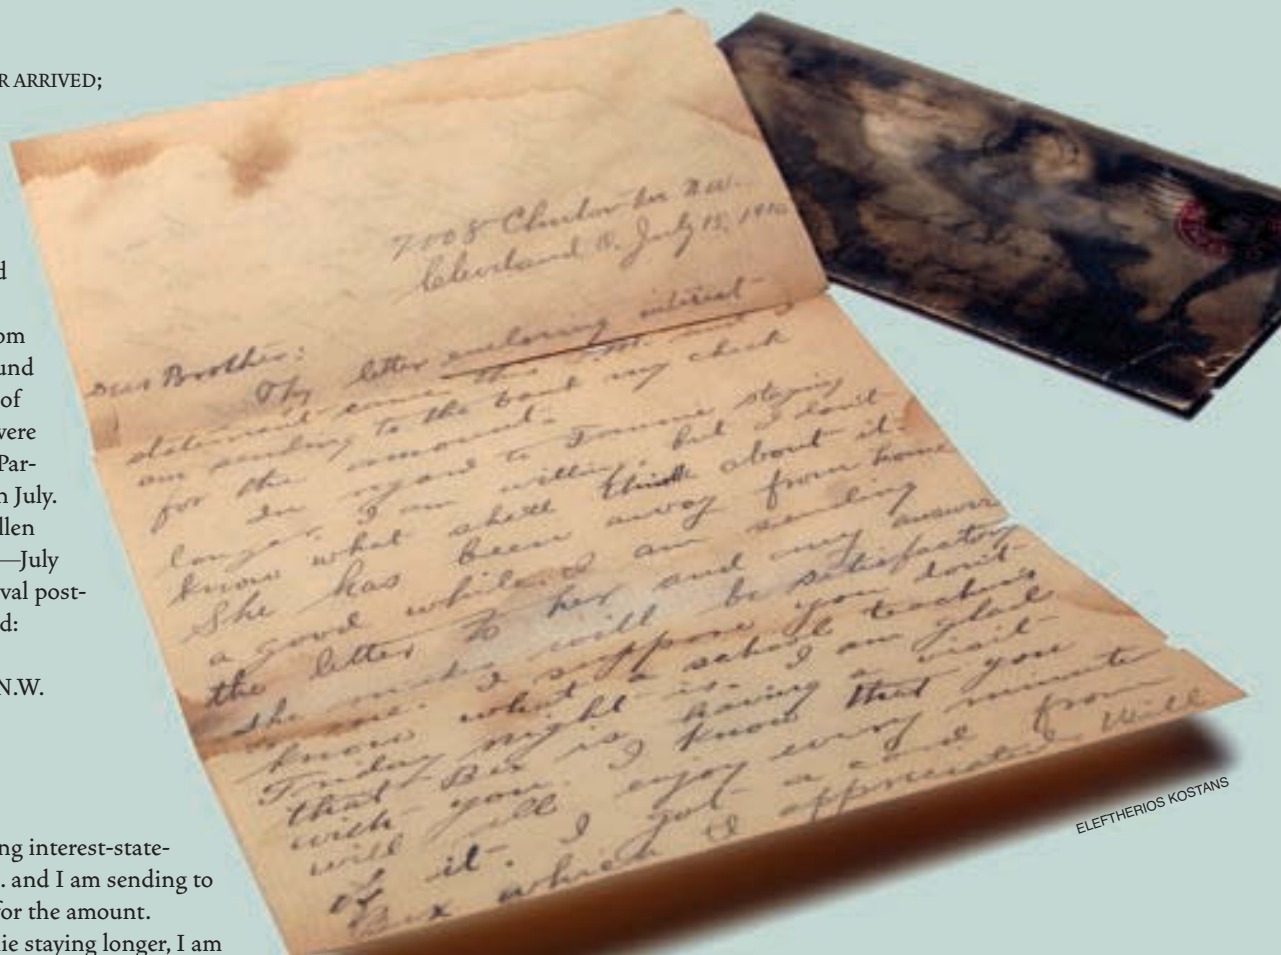 R ARRIVED;
d
om
und
of
were
Par-
n July.
llen
—July
val post-
d:
N.W.
ng interest-state-
. and I am sending to
for the amount.
ie staying longer, I am
Cleveland O. July 15, 19
Dear Brother:
Thy letter enclosing interest-
statement came this and I
am sending to the bank my check
for the amount.
In regard to Fannie staying
longer, I am willing, but I don't
know what she'll think about it.
She has been away from home
a good while. I am sending
the letter to her and any answer
she makes will be satisfactory
to me. I suppose you don't
know what a school teacher's
Friday night is. I am glad
that Bix is having a visit
with you. I know that you
will all enjoy every minute
of it. I got a card from
Bix which I appreciated. Will
ELEFTHERIOS KOSTANS